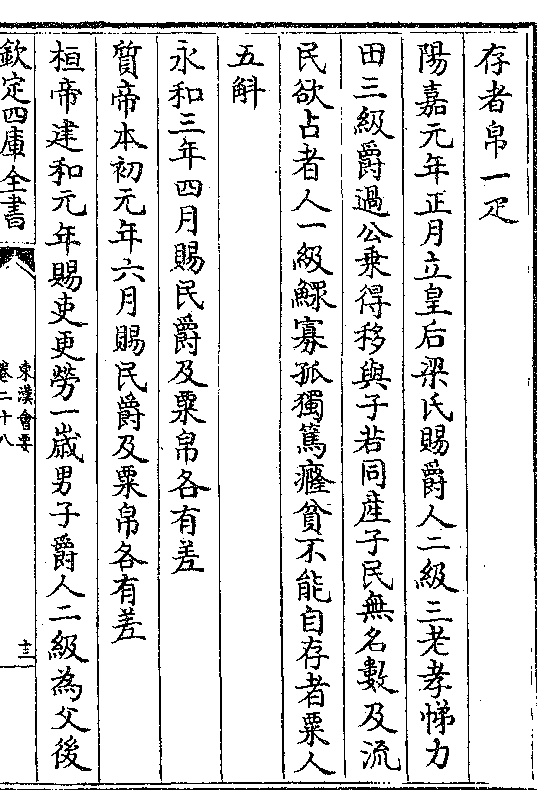 存者帛一疋
陽嘉元年正月立皇后梁氏賜爵人二級三老孝悌力
田三級爵過公乗得移與子若同産子民無名數及流
民欲占者人一級鰥寡孤獨篤癃貧不能自存者粟人
五斛
永和三年四月賜民爵及粟帛各有差
質帝本初元年六月賜民爵及粟帛各有差
桓帝建和元年賜吏更勞一歲男子爵人二級為父後
欽定四庫全書
東漢會要
卷二十八
十三